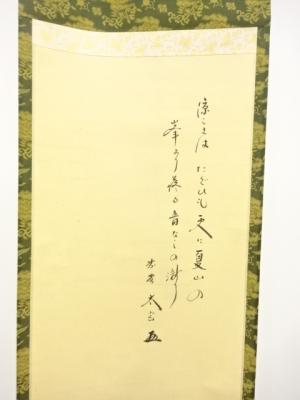 涼しさは たぐひも 更に 夏山の
峯より落る 音なしの瀧